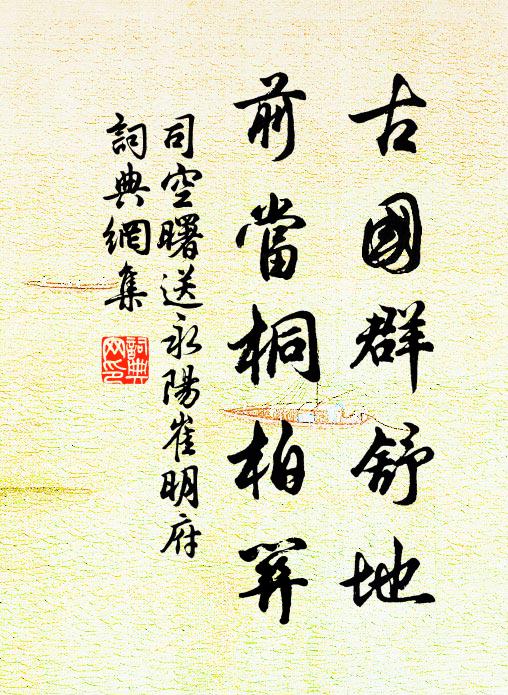 古國群舒地
前當桐柏關
司空曙送永陽崔明府
詞典網集
詞典
网印